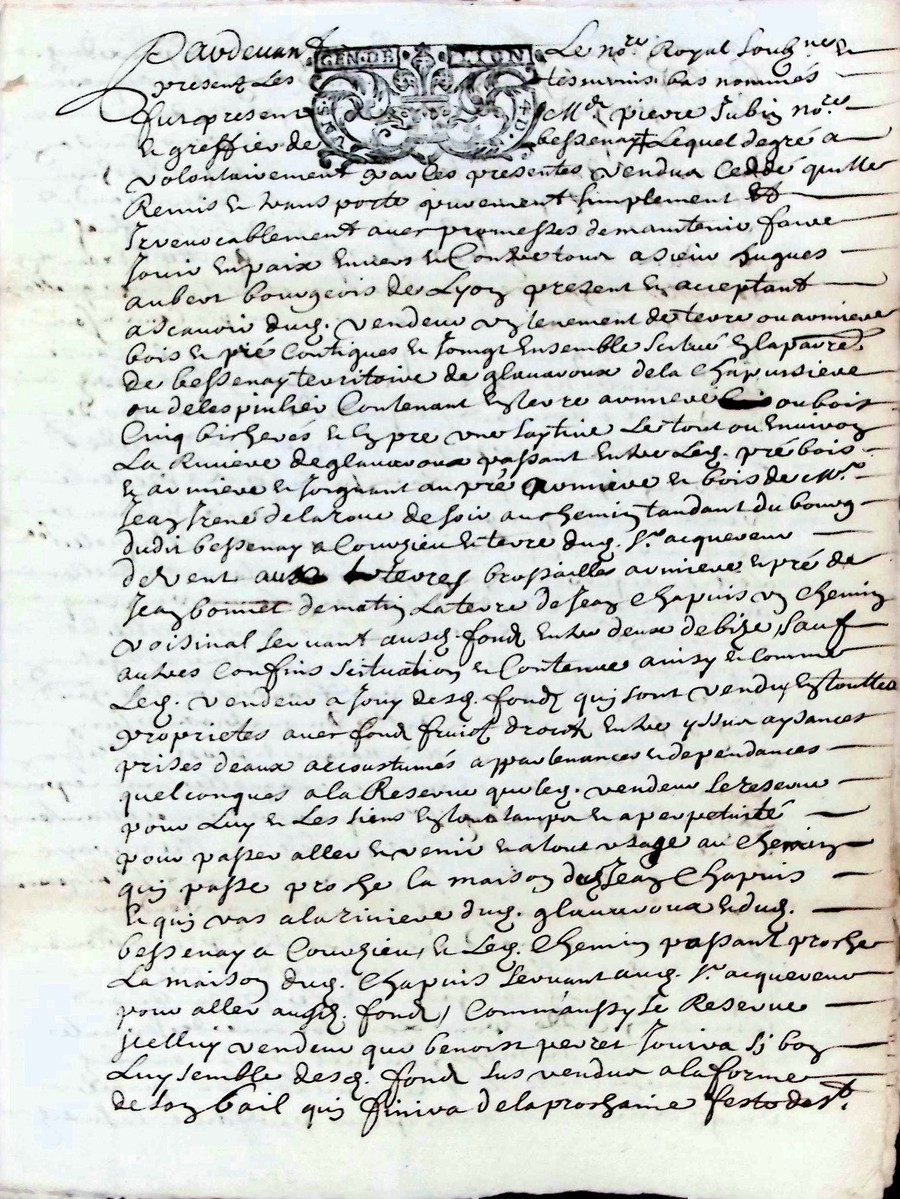 Pardevant Le no.re Royal soubz.ne &
present Les tesmoins bas nommés
GEN. DE LION
fut present M.e pierre Jubin no.re
& greffier de bessenay Lequel degré a
volontairement par les presentes vendu Ceddé quitté
Remis & transporté purement simplement &
Irrevocablement avec promesses de maintenir faire
Jouir en paix envers & Contre tous a sieur hugues
aubert bourgeois de Lyon present & acceptant
ascavoir dud. vendeur un tenement de terre ou avrniere
bois & pré Contigues & Joingt Ensemble scitué En la parr.e
de bessenay territoire de glavaroux de la Chapussiere
ou de lespinlier Contenant En terre avrniere ou bois
Cinq bicherés & En pre une Le tout ou Environ
La Riviere de glavaroux passant Entre Led. pré bois
& avrniere & Joignant au pré avrniere & bois de M.r
Jean Irené de laroue de soir au chemin tandant du bourg
dudit bessenay a Courzieu & terre dud. s.r acquereur
de vent aux terres brossailles avrniere & pré de
Jean bonnet de matin La terre de Jean Chapuis un Chemin
voisinal servant ausd. fondz Entre deux de bize, sauf
autres Confins scituation & Contenue ainsy & Comme
Led. vendeur a Jouy desd. fondz qui sont vendus En touttes
proprietes avec fondz fruictz droictz Entrée yssue aysances
prises deaux accoustumés appartenances & dependances
quelconques a la Reserve que led. vendeur se reserve
pour Luy & Les siens En tout tampz & a perpetuité
pour passer aller & venir & a tout usage au Chemin
qui passe proche la maison dud. Jean Chapuis
& qui vas a la riviere dud. glavaroux & dud.
bessenay a Courzieu, & Led. Chemin passant proche
La maison dud. Chapuis servant aud. s.r acquereur
pour aller ausd. fondz, Comme aussy se Reserve
Icelluy vendeur que benoist perret Jouira sy bon
Luy semble desd. fondz sus vendus a la forme
de son bail qui finira de la prochaine feste de s.t